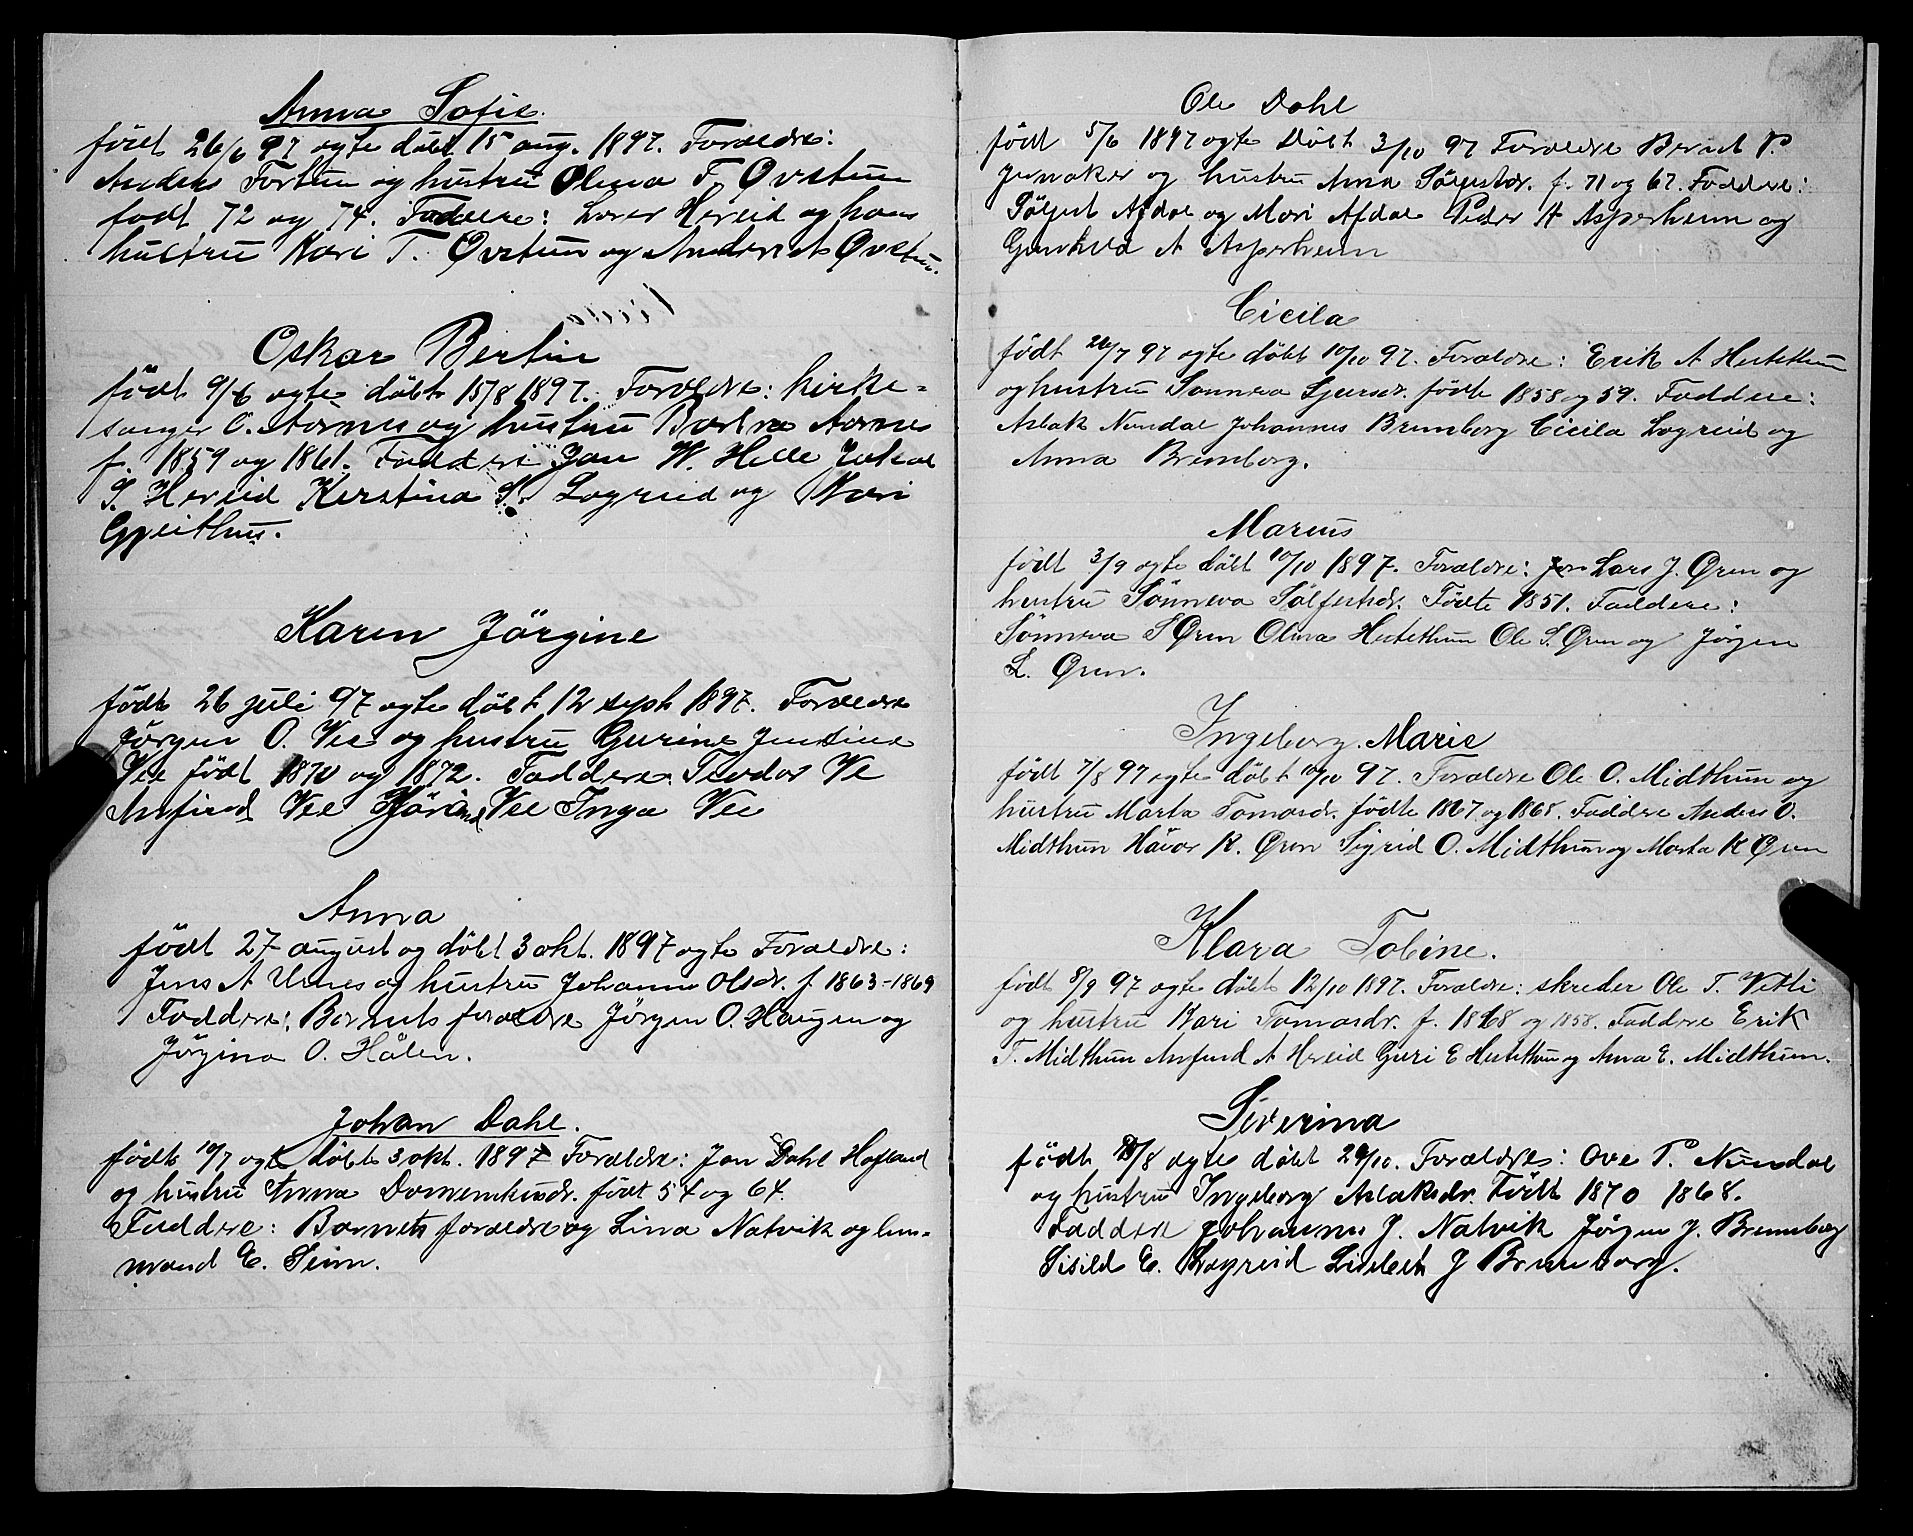 Anna Sofie.
født 26/6 97 ogte döbt 15 aug. 1897. Foræeldre:
Anders Fortun og hustru Olina T. Ovstun
født 72 og 74. Faddere: Hereid og hans
hustru Kari T. Øvstun og Anders A Øvstun.
Oskar Bertin
født 9/6 ogte döbt 15/8 1897. Foræeldre: kirke=
sanger O. Aarnes og hustru Aarnes
f. 1859 og 1861. Faddere Jan W. Helle Jakob
S. Hereid Kerstina S. Løgreid og Kari
Gjeithus.
Karen Jörgine
født 26 juli 97 ogte döbt 12 sept 1897. Forældre
Jörgen O. Vee og hustru Gurine Jensine
Vee født 1870 og 1872. Faddere Teodor Ve
Anfind Vee Vee Inga Vee
Anna
født 27 august og döbt 3 okt. 1897 ogte Forældre:
Jens A Urnes og hustru Johanne Olsdr. f 1863-1869
Faddere: Barnets forældre Jörgen O. Haugen og
Jörgina O. Hålen.
Johan Dahl.
födt 10/7 ogte döbt 3 okt. 1897 Forældre: Jon Dahl Hafland
og hustru Anna født 54 og 64.
Faddere: Barnets forældre og Lina Natvik og hus-
mand E. Seim.
Ole Dahl
født 5/6 1897 ogte Döbt 3/10 97 Forældre Bernt P.
og hustru Anna Sölfestdr. f. 71 og 67. Faddere:
Sölfest Afdal og Mari Afdal Peder A Asperheim og
Gunhild A Asperheim
Cicila
født 26/7 97 ogte döbt 10/10 97. Forældre: Erik A Hestethun
og hustru Sønneva Sjursdr. födte 1858 og 59. Faddere:
Aslak Nundal Johannes Bremborg Cicila Løgreid og
Anna Bremborg.
Marius
født 3/9 ogte döbt 10/10 1897. Forældre: Lars J. Øren og
hustru Sönneva Sölfestsdr. Födte 1851. Faddere:
Sönneva S Øren Olina Hestethun Ole S. Øren og Jörgen
L. Øren.
Ingeborg Marie
født 7/8 97 ogte döbt 10/10 97. Forældre Ole O. Midthun og
hustru Marta Tomasdr. födte 1867 og 1868. Faddere Anders O.
Midthun Håvar K. Øren Sigrid O. Midthun og Marta K Øren
Klara Tobine.
født 8/9 97 ogte döbt 12/10 1897. Forældre: skreder Ole T. Vetti
og hustru Kari Tomasdr. f. 1868 og 1858. Faddere Erik
T. Midthun Anfind A Hereid Guri E Hestethun og Anna E. Midthun.
Siverina
födt /8 ogte döbt 24/10. Forældre: Ove P. Nundal
og hustru Ingeborg Aslaksdr. Födt 1870 1868.
Faddere Johannes J. Natvik Jörgen J. Bremborg
Sisild E. Løgreid Lisbet J Bremborg.